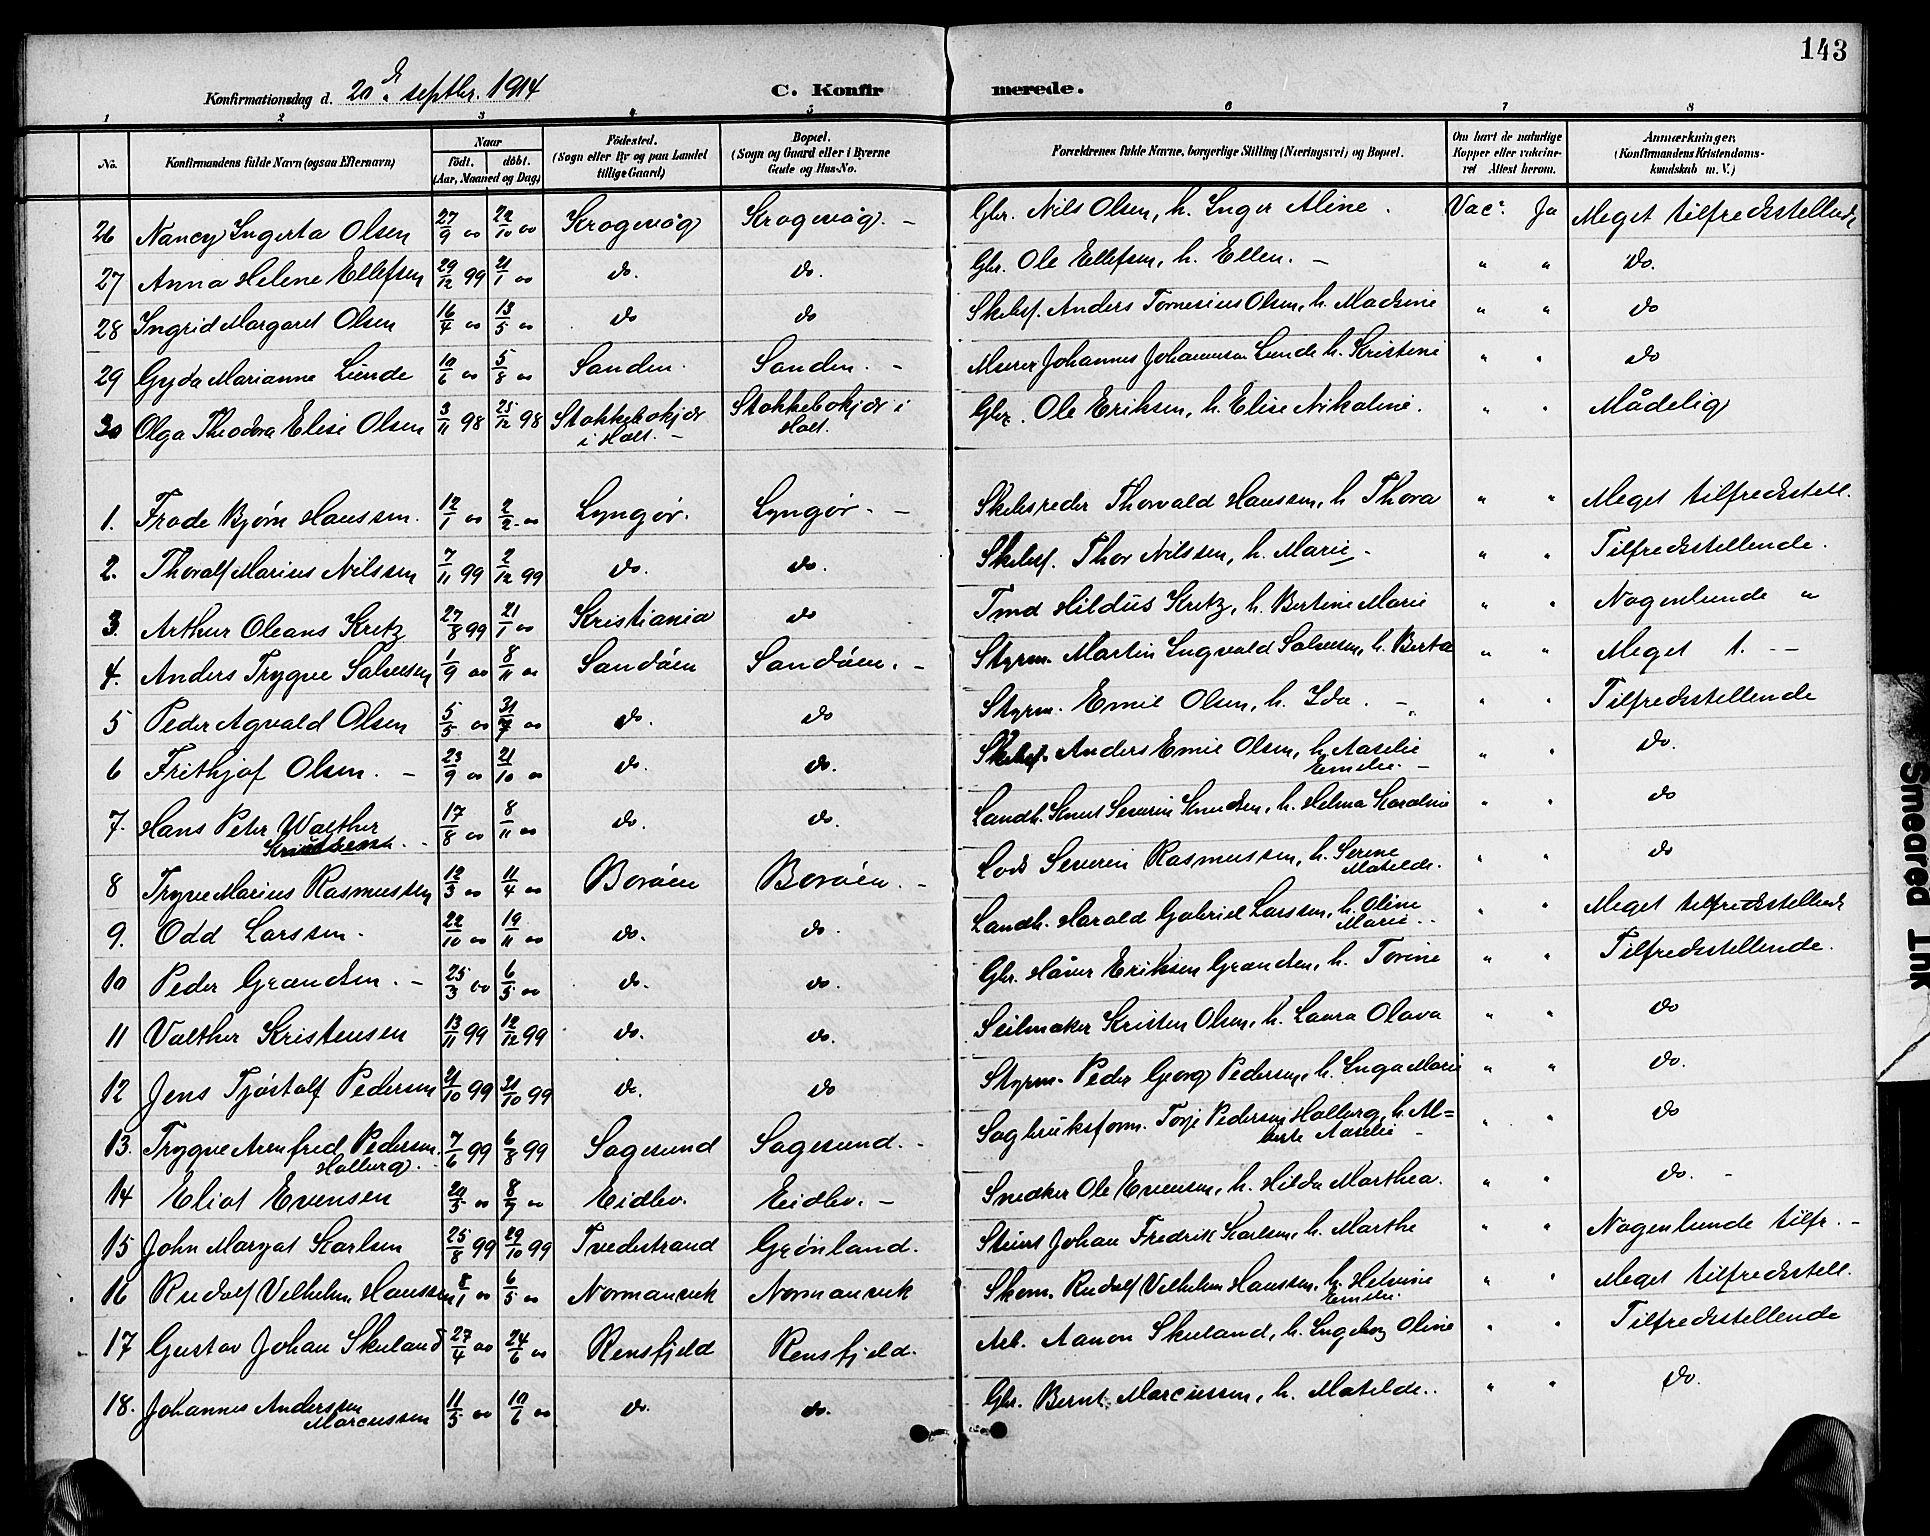 143
Konfirmationsdag d. 20 de septbr. 1914 C. Konfirmerede.
1 2 3 4 5 6 7 8
No. Konfirmandens fulde Navn (ogsaa Efternavn) Naar født. døbt. (Aar, Maaned og Dag) Fødested. (Sogn eller By og paa Landet tillige Gaard) Bopæl. (Sogn og Gaard eller i Byerne Gade og Hus-No. Forældrenes fulde Navne, borgerlige Stilling (Næringsvei) og Bopæl. Om havt de naturlige Kopper eller vakcineret Attest herom. Anmærkninger, (Konfirmandens Kristendomskundskab m. V.)
26 Nancy Ingerta Olsen 27/9 00 22/10 00 Krogevåg Krogevåg. - Gbr. Nils Olsen, h. Inger Aline. Vac. Ja Meget tilfredsstellende
27 Anna Helene Ellefsen 29/12 99 21/1 00 do. do. Gbr. Ole Ellefsen, h. Ellen. - " " do.
28 Ingrid Margaret Olsen 16/4 00 13/5 00 do do Skibsf. Anders Tornesius Olsen, h. Madsine " " do
29 Gyda Marianne Lunde 10/6 00 5/8 00 Sanden. Sanden. - Murer Johannes Johannessen Lunde h. Kristine " " do
30 Olga Theodora Elise Olsen 3/11 98 25/12 98 Stokkebokjær i Holt. - Stokkebokjær i Holt. Gbr. Ole Eriksen, h. Elise Nikoline. " " Mådelig
1. Frode Bjørn Hanssen. 12/1 00 2/2 00 Lyngør. Lyngør. - Skibsreder Thorvald Hanssen, h. Thora " " Meget tilfredsstell.
2. Thoralf Marius Nilssen 7/11 99 2/12 99 do. do. Skibsf. Thor Nilssen, h. Marie - " " Tilfredsstellende.
3. Arthur Oleans Kretz 27/8 99 21/1 00 Kristiania do Tmd Hildus Kretz, h. Bertine Marie " " Nogenlunde "
4. Anders Trygve Salvesen 1/9 00 8/11 00 Sandøen Sandøen. - Styrm. Martin Ingvald Salvesen, h. Berta " " Meget t. --
5 Peder Agvald Olsen 5/5 00 31/7 00 do. do Styrm. Emil Olsen, h. Ida. - " " Tilfredsstellende
6 Frithjof Olsen. - 23/9 00 21/10 00 do. do. Skibsf. Anders Emil Olsen, h. Aaselie Emelie. - " " do.
7. Hans Peter Walther 17/8 00 8/11 00 do. do. Landh. Knut Severin Knudsen, h. Helma Karoline " " do
8 Trygve Marius Rasmussen 12/3 00 11/4 00 Borøen Borøen. - Lods Severin Rasmussen, h. Serine Matilde. " " do
9. Odd Larssen. 22/10 00 19/11 00 do. do. Landh. Harald Gabriel Larssen, h. Oline Marie. " " Meget tilfredsstellende
10 Peder Grændsen. - 25/3 00 6/5 00 do. do. Gbr. Håver Eriksen Grændsen, h. Torine " " Tilfredsstellende.
11 Valther Kristensen 13/11 99 12/12 99 do. do. Seilmaker Kristen Olsen, h. Laura Olava " " do
12 Jens Tjøstolf Pedersen 21/10 99 31/10 99 do. do Styrm. Peder Georg Pedersen, h. Inga Marie " " do.
13. Trygve Arnfred Pedersen Holberg. 7/6 99 6/8 99 Sagesund Sagesund. - Sagbruksform. Torje Pedersen Holberg, h. Alberte Aaselie - " " do
14 Eliot Evensen 20/5 00 8/7 00 Eidbo. Eidbo. - Snedker Ole Evensen, h. Hilda Marthea. " " do. -
15 John Maryat Karlsen 25/8 99 29/10 99 Tvedestrand Grønland. Johan Fredrik Karlsen, h. Marthe " " Nogenlunde tilfr. -
16 Rudolf Vilhelm Hanssen 8/1 00 6/5 00 Normansvik Normansvik Skom. Rudolf Vilhelm Hanssen, h. Helmine Emelie. " " Meget tilfredsstell.
17 Gustav Johan Skuland 27/4 00 24/6 00 Rensfjeld Rensfjeld. Arb. Aanon Skuland, h. Ingeborg Oline " " Tilfredsstellende
18. Johannes Anderssen Marcussen 11/5 00 10/6 00 do. do. Gbr. Bernt Marcussen, h. Matilde. " " do.
Smeared Ink